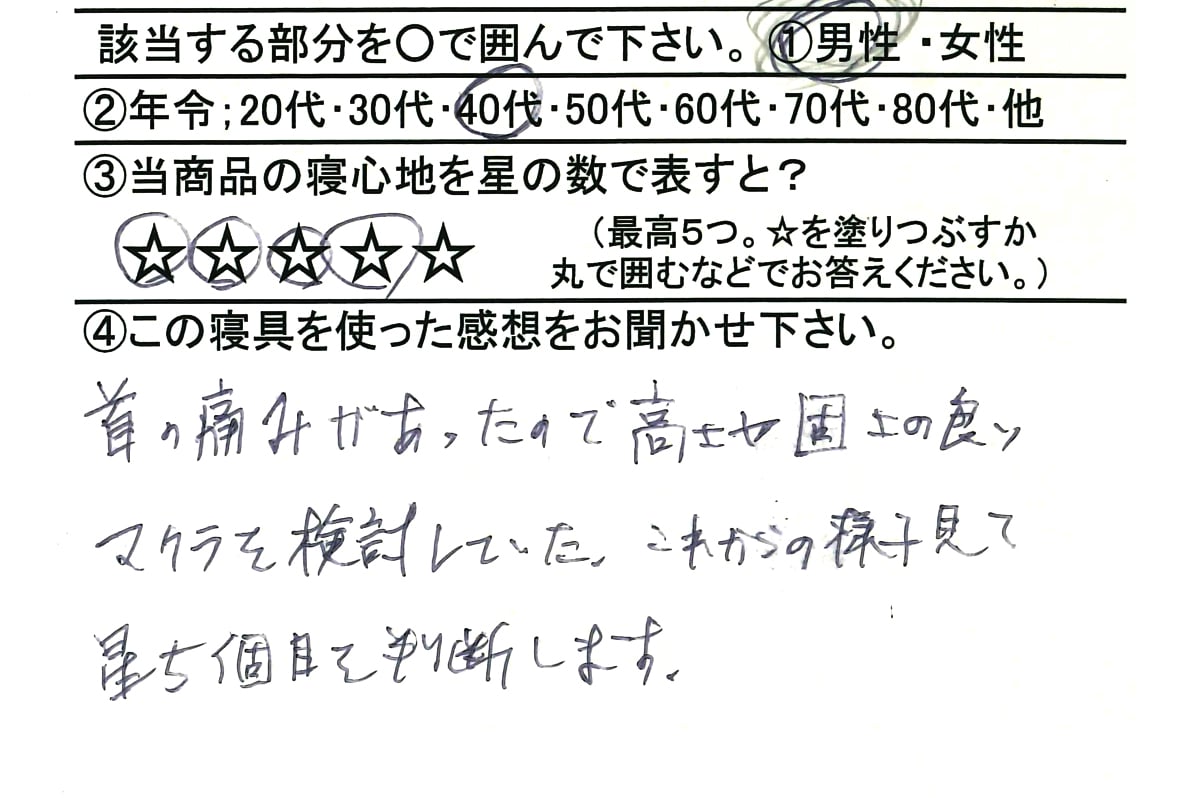 該当する部分を〇で囲んで下さい。 ①男性・女性
②年令；20代・30代・40代・50代・60代・70代・80代・他
③当商品の寝心地を星の数で表すと？
☆☆☆☆☆ （最高5つ。☆を塗りつぶすか
丸で囲むなどでお答えください。）
④この寝具を使った感想をお聞かせ下さい。
首の痛みがあったので高さや固さの良い
マクラを検討していた。これからの様子見て
星5個目を判断します。